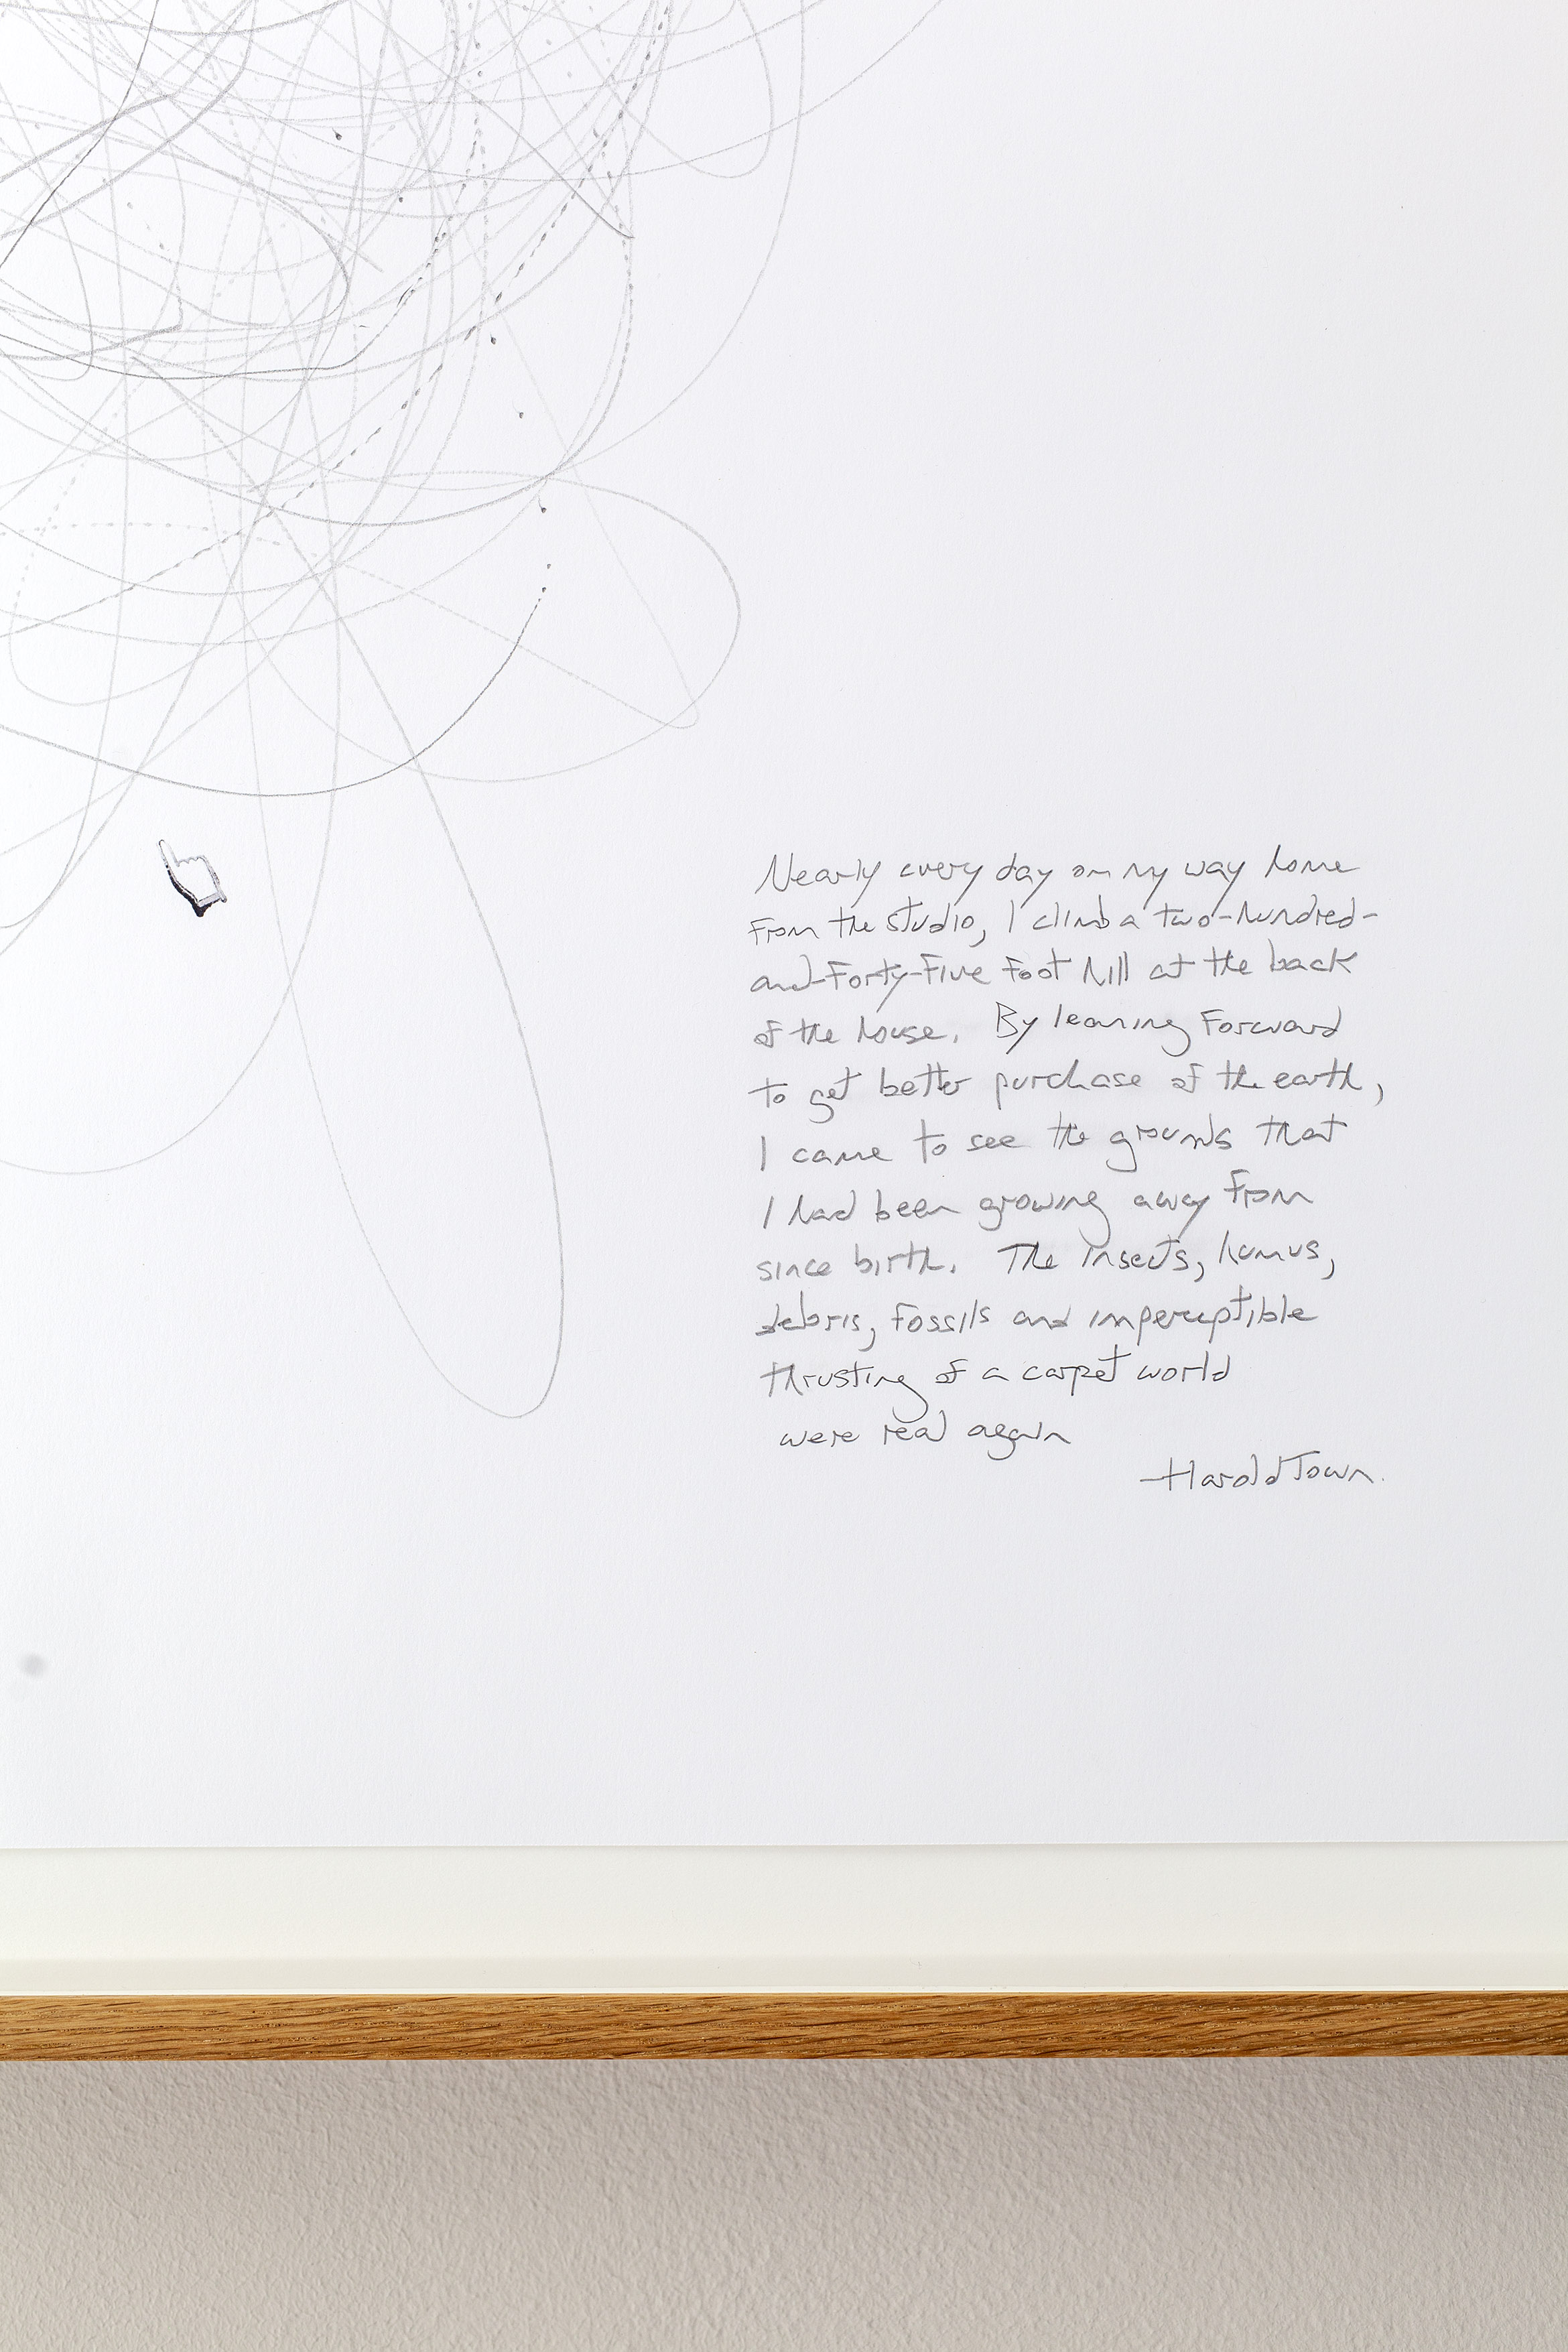 Nearly every day on my way home
from the studio, I climb a two-hundred-
and-forty-five foot hill at the back
of the house. By leaning forward
to get better purchase of the earth,
I came to see the grounds that
I had been growing away from
since birth. The insects, humus,
debris, fossils and imperceptible
thrusting of a carpet world
were real again
—Harold Town.